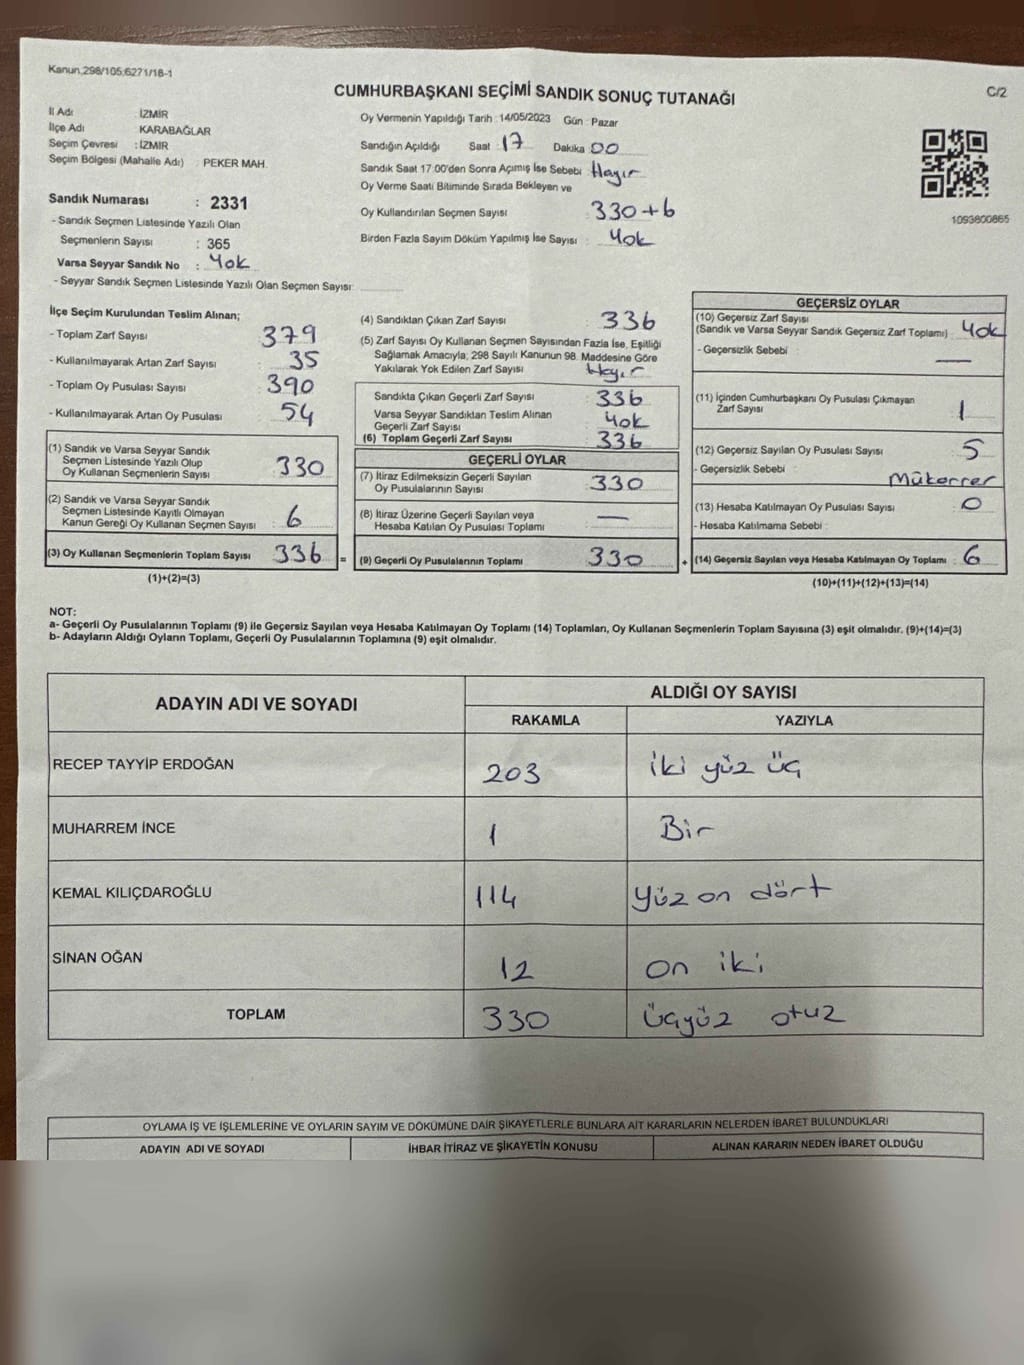 Kanun;298/105;6271/18-1
CUMHURBAŞKANI SEÇİMİ SANDIK SONUÇ TUTANAĞI
C/2
İl Adı : İZMİR
İlçe Adı : KARABAĞLAR
Seçim Çevresi : İZMİR
Seçim Bölgesi (Mahalle Adı) : PEKER MAH.
Sandık Numarası : 2331
- Sandık Seçmen Listesinde Yazılı Olan
Seçmenlerin Sayısı : 365
Varsa Seyyar Sandık No : Yok
- Seyyar Sandık Seçmen Listesinde Yazılı Olan Seçmen Sayısı:
Oy Vermenin Yapıldığı Tarih : 14/05/2023 Gün : Pazar
Sandığın Açıldığı Saat : 17 Dakika 00
Sandık Saat 17.00'den Sonra Açımış İse Sebebi : Hayır
Oy Verme Saati Bitiminde Sırada Bekleyen ve
Oy Kullandırılan Seçmen Sayısı : 330+6
Birden Fazla Sayım Döküm Yapılmış İse Sayısı : Yok
1093800865
İlçe Seçim Kurulundan Teslim Alınan;
- Toplam Zarf Sayısı : 379
- Kullanılmayarak Artan Zarf Sayısı : 35
- Toplam Oy Pusulası Sayısı : 390
- Kullanılmayarak Artan Oy Pusulası : 54
(1) Sandık ve Varsa Seyyar Sandık
Seçmen Listesinde Yazılı Olup
Oy Kullanan Seçmenlerin Sayısı : 330
(2) Sandık ve Varsa Seyyar Sandık
Seçmen Listesinde Kayıtlı Olmayan
Kanun Gereği Oy Kullanan Seçmen Sayısı : 6
(3) Oy Kullanan Seçmenlerin Toplam Sayısı : 336 =
(1)+(2)=(3)
(4) Sandıktan Çıkan Zarf Sayısı : 336
(5) Zarf Sayısı Oy Kullanan Seçmen Sayısından Fazla İse, Eşitliği
Sağlamak Amacıyla, 298 Sayılı Kanunun 98. Maddesine Göre
Yakılarak Yok Edilen Zarf Sayısı : Hayır
Sandıkta Çıkan Geçerli Zarf Sayısı : 336
Varsa Seyyar Sandıktan Teslim Alınan
Geçerli Zarf Sayısı : Yok
(6) Toplam Geçerli Zarf Sayısı : 336
GEÇERLİ OYLAR
(7) İtiraz Edilmeksizin Geçerli Sayılan
Oy Pusulalarının Sayısı : 330
(8) İtiraz Üzerine Geçerli Sayılan veya
Hesaba Katılan Oy Pusulası Toplamı : —
(9) Geçerli Oy Pusulalarının Toplamı : 330 +
GEÇERSİZ OYLAR
(10) Geçersiz Zarf Sayısı
(Sandık ve Varsa Seyyar Sandık Geçersiz Zarf Toplamı) : Yok
- Geçersizlik Sebebi : —
(11) İçinden Cumhurbaşkanı Oy Pusulası Çıkmayan
Zarf Sayısı : 1
(12) Geçersiz Sayılan Oy Pusulası Sayısı : 5
- Geçersizlik Sebebi : Mükerrer
(13) Hesaba Katılmayan Oy Pusulası Sayısı : 0
- Hesaba Katılmama Sebebi :
(14) Geçersiz Sayılan veya Hesaba Katılmayan Oy Toplamı : 6
(10)+(11)+(12)+(13)=(14)
NOT:
a- Geçerli Oy Pusulalarının Toplamı (9) ile Geçersiz Sayılan veya Hesaba Katılmayan Oy Toplamı (14) Toplamları, Oy Kullanan Seçmenlerin Toplam Sayısına (3) eşit olmalıdır. (9)+(14)=(3)
b- Adayların Aldığı Oyların Toplamı, Geçerli Oy Pusulalarının Toplamına (9) eşit olmalıdır.
ADAYIN ADI VE SOYADI
ALDIĞI OY SAYISI
RAKAMLA YAZIYLA
RECEP TAYYİP ERDOĞAN 203 iki yüz üç
MUHARREM İNCE 1 Bir
KEMAL KILIÇDAROĞLU 114 Yüz on dört
SİNAN OĞAN 12 on iki
TOPLAM 330 üçyüz otuz
OYLAMA İŞ VE İŞLEMLERİNE VE OYLARIN SAYIM VE DÖKÜMÜNE DAİR ŞİKAYETLERLE BUNLARA AİT KARARLARIN NELERDEN İBARET BULUNDUKLARI
ADAYIN ADI VE SOYADI İHBAR İTİRAZ VE ŞİKAYETİN KONUSU ALINAN KARARIN NEDEN İBARET OLDUĞU